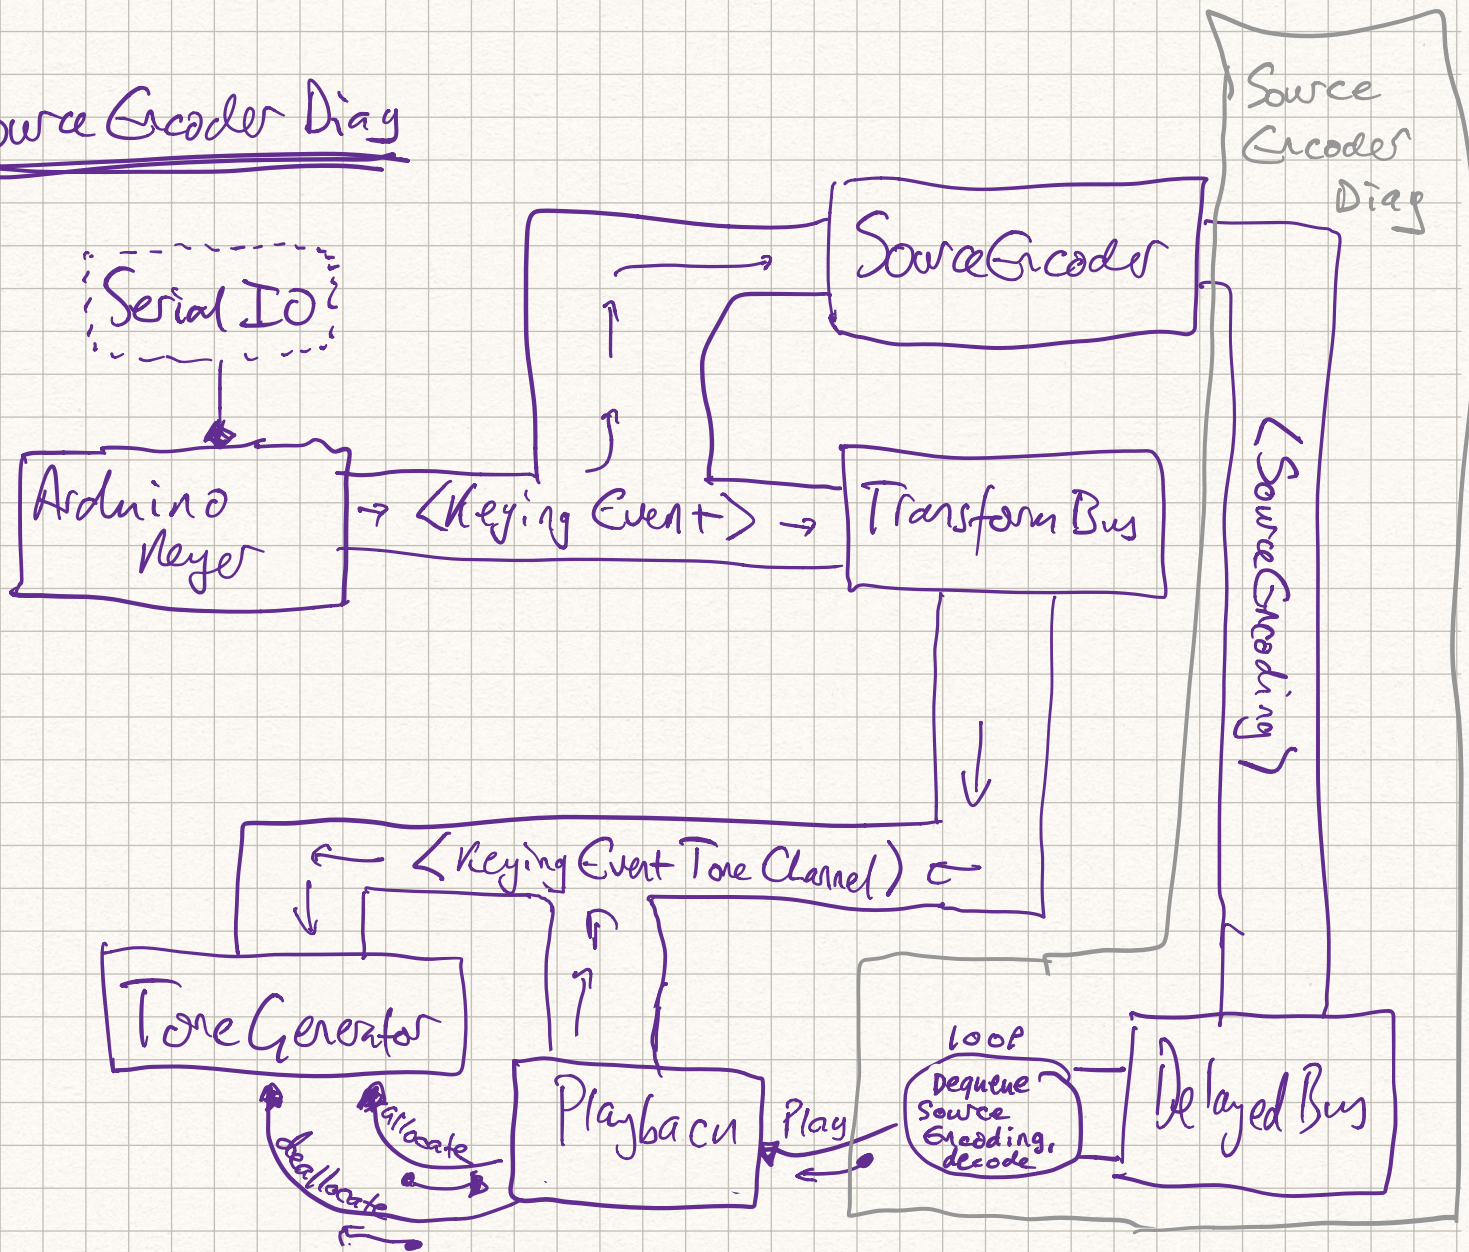 ource Encoder Diag
Source
Encoder
Diag
Serial IO
SourceEncoder
Arduino
Keyer
<Keying Event>
Transform Bus
<SourceEncoding>
<Keying Event Tone Channel>
Tone Generator
Playback
allocate
deallocate
Play
loop
Dequeue
Source
Encoding,
decode
Delayed Bus